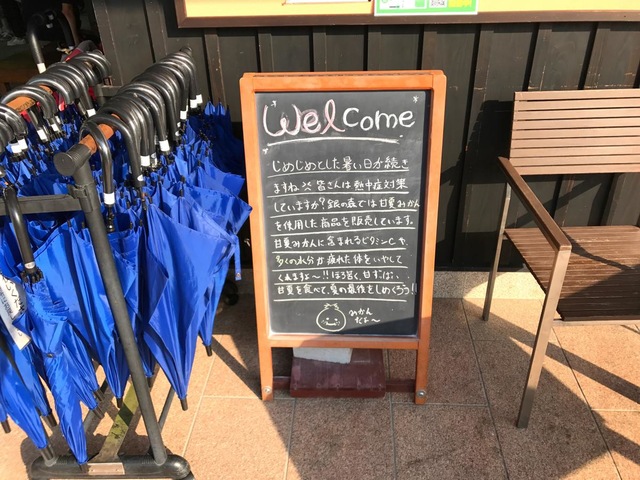 Welcome
じめじめとした暑い日が続き
ますね 皆さんは熱中症対策
していますか?銀の森では甘夏みかん
を使用した商品を販売しています。
甘夏みかんに含まれるビタミンCや、
多くの水分が疲れた体をいやして
くれますよ〜!!ほろ苦く、甘ずっぱい、
甘夏を食べて、夏の最後をしめくろう!!
みかん
だよ〜